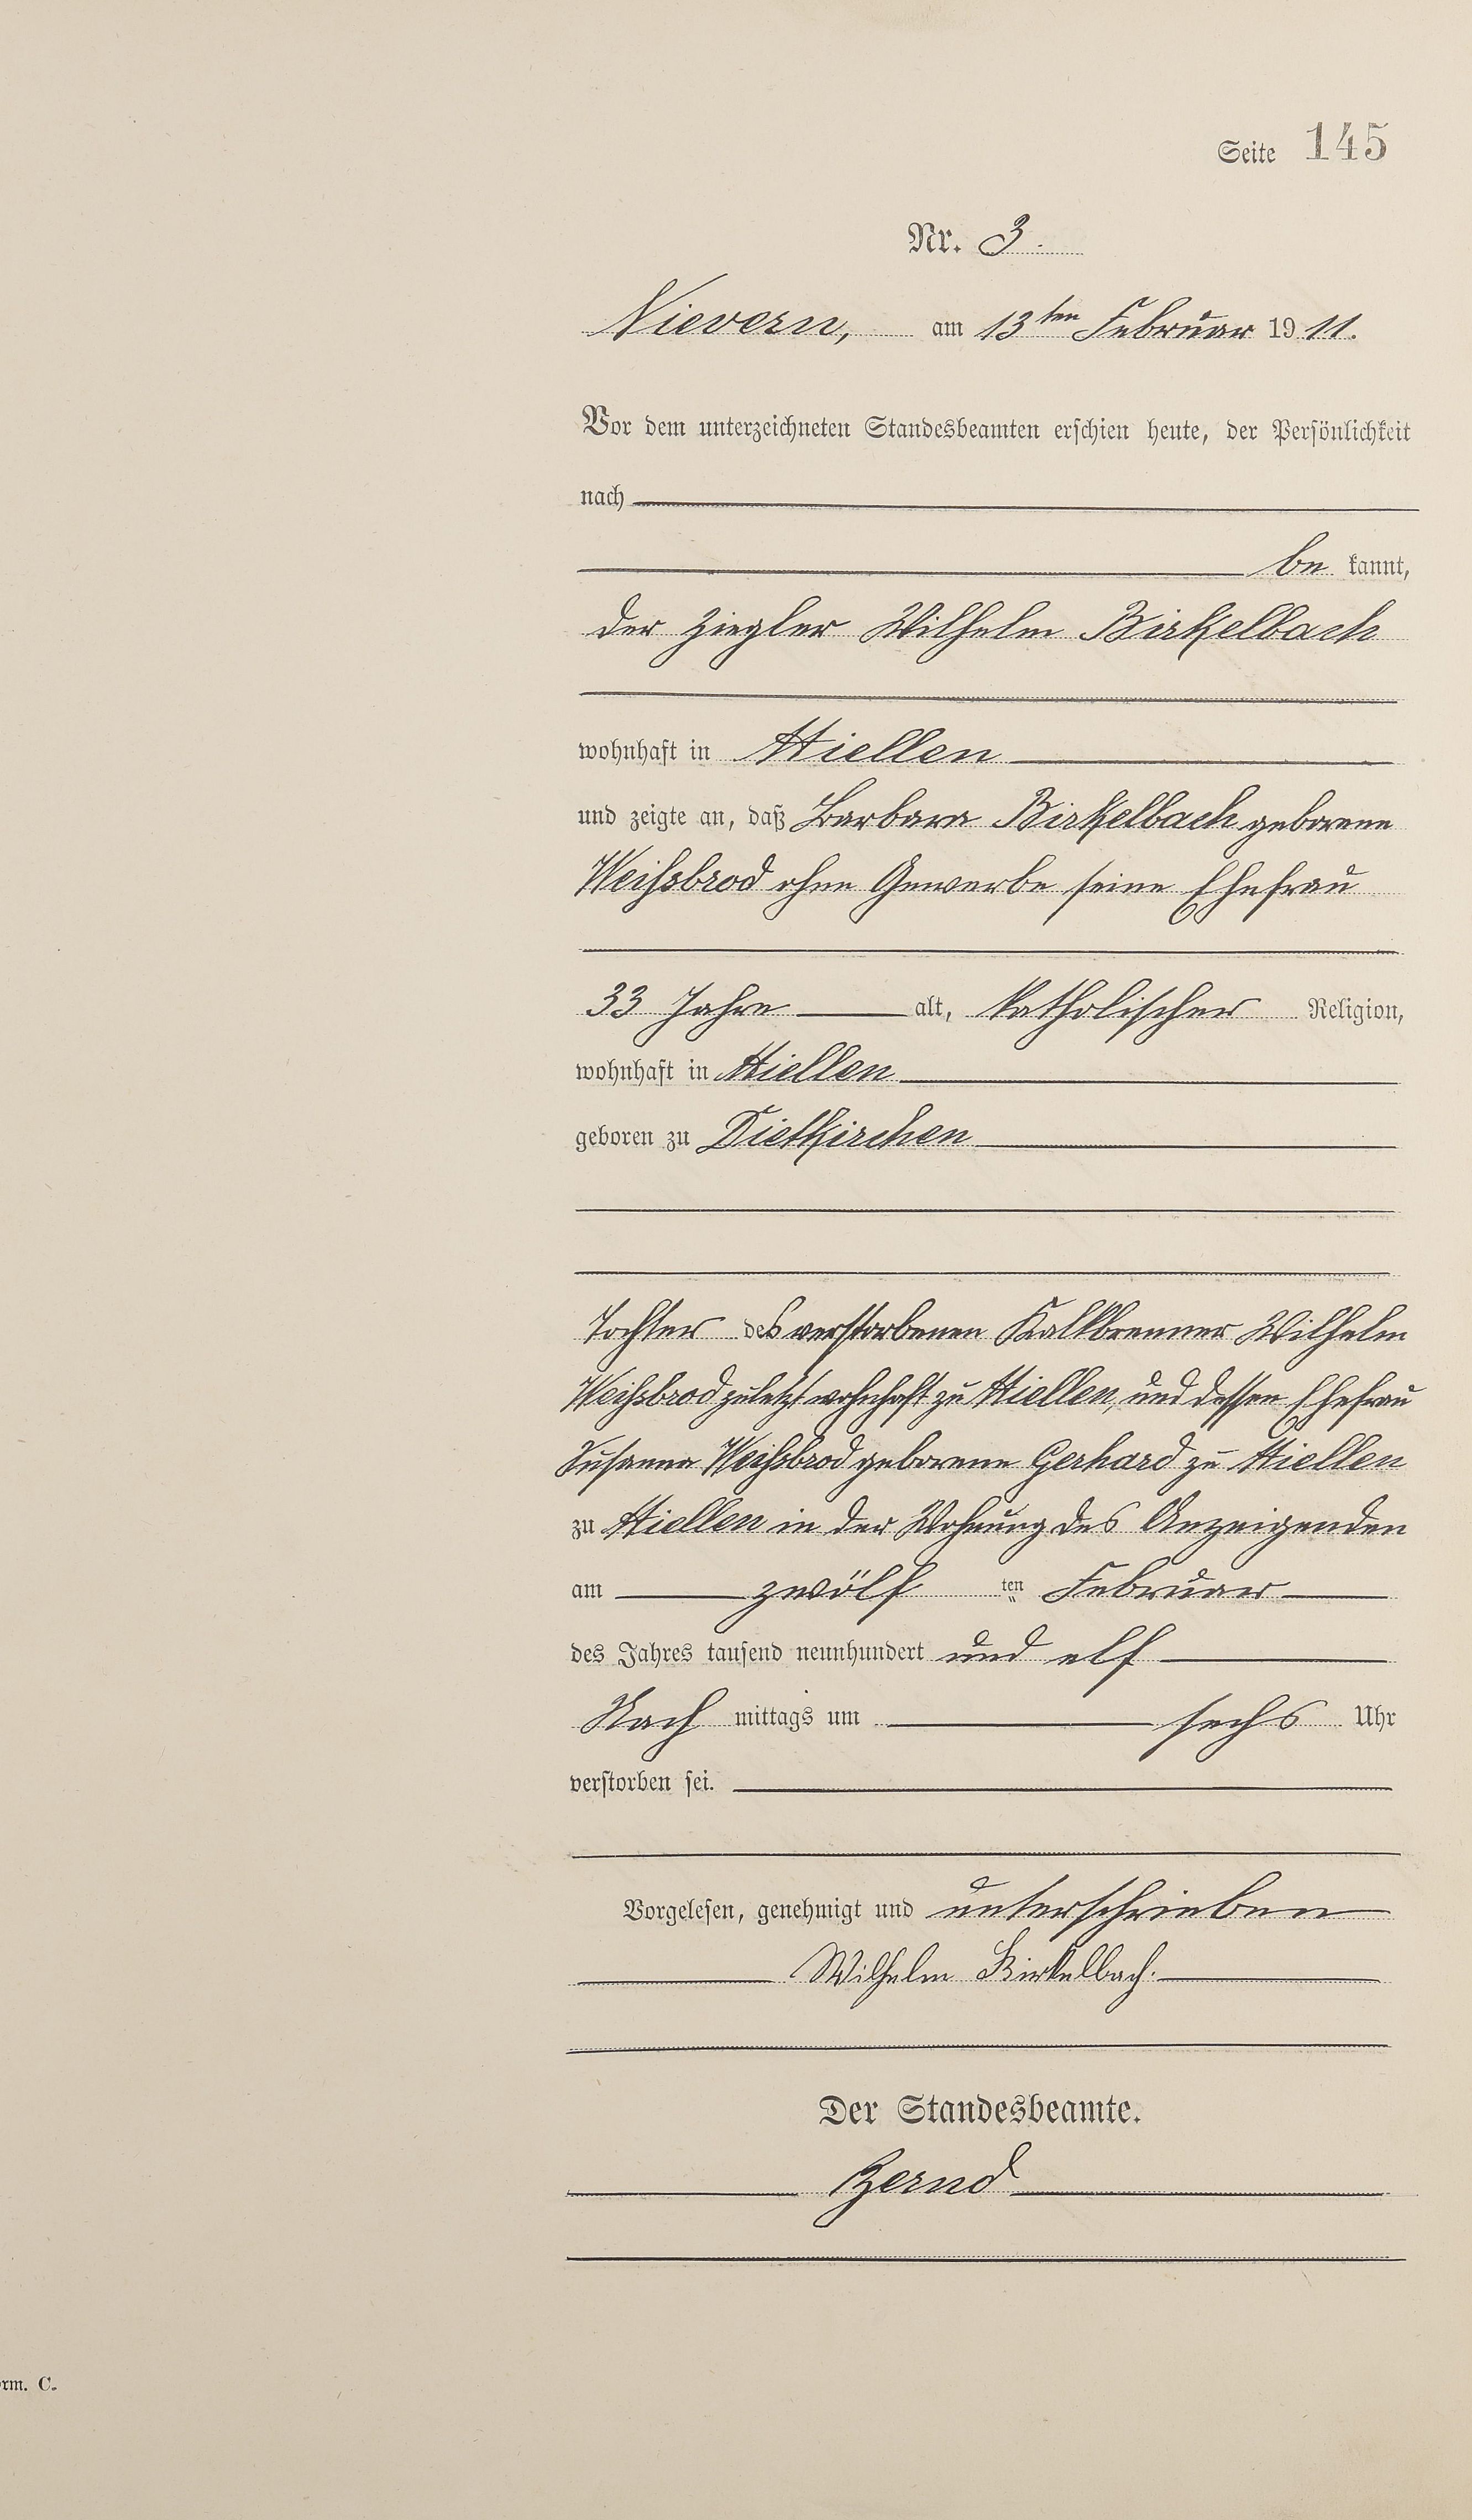 Seite 145
Nr. 3.
Nievern, am 13ten Februar 1911.
Vor dem unterzeichneten Standesbeamten erschien heute, der Persönlichkeit
nach
be kannt,
der Ziegler Wilhelm Birkelbach
wohnhaft in Miellen
und zeigte an, daß Barbara Birkelbach geborene
Weißbrod ohne Gewerbe seine Ehefrau
33 Jahre alt, katholischer Religion,
wohnhaft in Miellen
geboren zu Dietkirchen
Tochter des verstorbenen Kalkbrenner Wilhelm
Weißbrod zuletzt wohnhaft zu Miellen, und dessen Ehefrau
Susanna Weißbrod geborene Gerhard zu Miellen
zu Miellen in der Wohnung des Anzeigenden
am zwölf ten Februar
des Jahres tausend neunhundert und elf
Nach mittags um sechs Uhr
verstorben sei.
Vorgelesen, genehmigt und unterschrieben
Wilhelm Birkelbach.
Der Standesbeamte.
Zernd
orm. C.